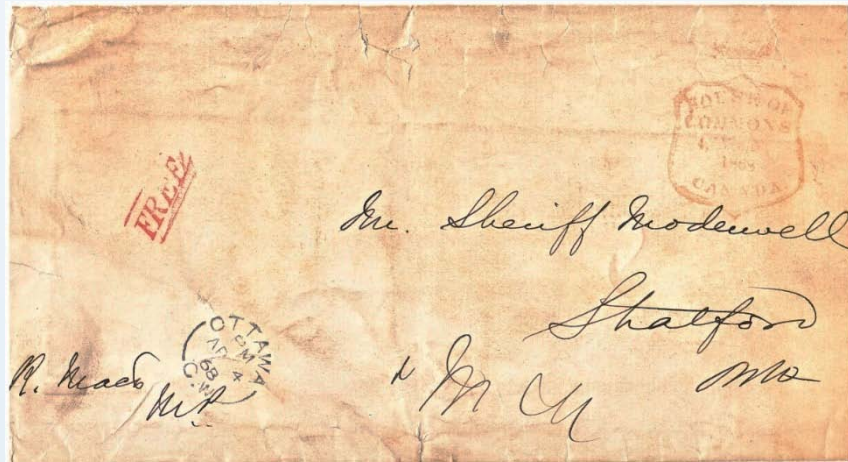 HOUSE OF
COMMONS
1868
CANADA
FREE
Mr. Sheriff Moderwell
Stratford
Ont
OTTAWA
PM
AP 4
68
C.W
R. Mac
MP